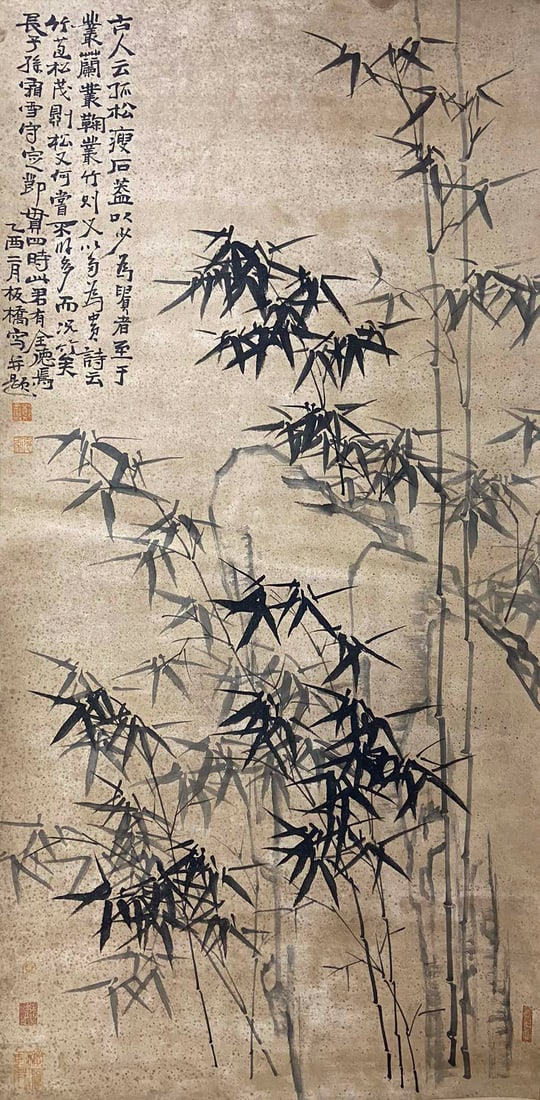 古人云孤松瘦石蓋以少為貴者至于
叢蘭叢鞠叢竹则又以多為貴詩云
竹苞松茂則松又何嘗不多而況竹矣
長子孫霜雪守定節貫四時此君有全德焉
乙酉二月板橋寫并題